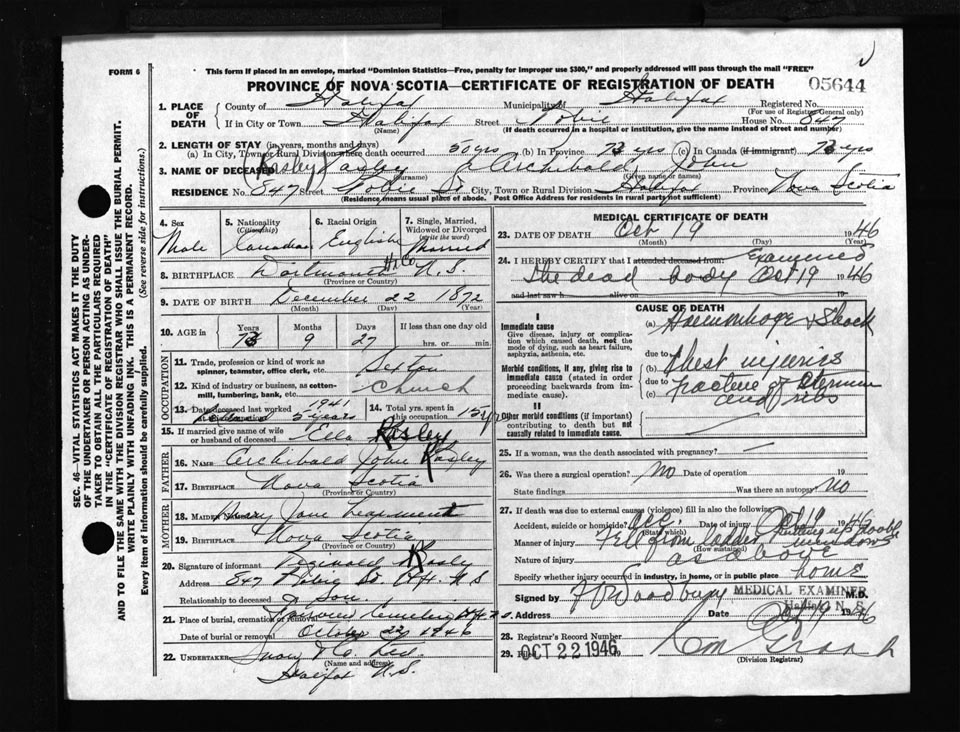 FORM 6
This form if placed in an envelope, marked "Dominion Statistics—Free, penalty for improper use $300," and properly addressed will pass through the mail "FREE"
PROVINCE OF NOVA SCOTIA—CERTIFICATE OF REGISTRATION OF DEATH
05644
1. PLACE OF DEATH
County of Halifax Municipality of Halifax Registered No.
(For use of Registrar General only)
If in City or Town Halifax Street Robie House No. 847
(Name) (If death occurred in a hospital or institution, give the name instead of street and number)
2. LENGTH OF STAY (in years, months and days)
(a) In City, Town or Rural Division where death occurred 50 yrs (b) In Province 73 yrs (c) In Canada (if immigrant) 73 yrs
3. NAME OF DECEASED (Kasley) Archibald John
(Surname) (Given names)
RESIDENCE No. 847 Street Robie St City, Town or Rural Division Halifax Province Nova Scotia
(Residence means usual place of abode. Post Office Address for residents in rural party not sufficient)
4. Sex
Male
5. Nationality
(Citizenship)
Canadian
6. Racial Origin
English
7. Single, Married, Widowed or Divorced
(write the word)
Married
8. BIRTHPLACE Dartmouth Hx Co N.S.
(Province or Country)
9. DATE OF BIRTH December 22 1872
(Month) (Day) (Year)
10. AGE in
Years Months Days If less than one day old
73 9 27 hrs. or min.
OCCUPATION
11. Trade, profession or kind of work as spinner, teamster, office clerk, etc. Sexton
12. Kind of industry or business, as cotton-mill, lumbering, bank, etc. Church
13. Date deceased last worked 1941
5 years
14. Total yrs. spent in this occupation 15 yrs
15. If married give name of wife or husband of deceased Ella Kasley
FATHER
16. NAME Archibald John Kasley
17. BIRTHPLACE Nova Scotia
(Province or Country)
MOTHER
18. MAIDEN NAME Mary Jane
19. BIRTHPLACE Nova Scotia
(Province or Country)
20. Signature of informant Reginald Kasley
Address 847 Robie St. N.S
Relationship to deceased Son.
21. Place of burial, cremation or removal Fairview Cemetery
Date of burial or removal October 22 1946
22. UNDERTAKER Snow & Co. Ltd.
(Name and address)
Halifax N.S.
MEDICAL CERTIFICATE OF DEATH
23. DATE OF DEATH Oct 19 1946
(Month) (Day) (Year)
24. I HEREBY CERTIFY that I attended deceased from: Examined
the dead body Oct 19 1946
and last saw h alive on 19
CAUSE OF DEATH
I
Immediate cause
Give disease, injury or complication which caused death, not the mode of dying, such as heart failure, asphyxia, asthenia, etc.
(a) Haemorrhage & Shock
due to
Morbid conditions, if any, giving rise to immediate cause (stated in order proceeding backwards from immediate).
(b) Chest injuries
due to
(c) Fracture of Sternum
and ribs
II
Other morbid conditions (if important) contributing to death but not causally related to immediate cause.
25. If a woman, was the death associated with pregnancy?
26. Was there a surgical operation? No Date of operation 19
State findings Was there an autopsy No
27. If death was due to external causes (violence) fill in also the following
Accident, suicide or homicide? Acc. Date of injury Oct 19 1946
(State which)
Manner of injury Fell from ladder putting in double windows
(How sustained)
Nature of injury as above
Specify whether injury occurred in industry, in home, or in public place home
Signed by F V Woodbury MEDICAL EXAMINER M.D.
Address Halifax N. S. Date Oct 19 1946
28. Registrar's Record Number
29. OCT 22 1946
(Division Registrar)
SEC. 46—VITAL STATISTICS ACT MAKES IT THE DUTY
OF THE UNDERTAKER OR PERSON ACTING AS UNDER-
TAKER TO OBTAIN ALL THE PARTICULARS REQUIRED
IN THE "CERTIFICATE OF REGISTRATION OF DEATH"
AND TO FILE THE SAME WITH THE DIVISION REGISTRAR WHO SHALL ISSUE THE BURIAL PERMIT.
WRITE PLAINLY WITH UNFADING INK. THIS IS A PERMANENT RECORD.
Every item of information should be carefully supplied. (See reverse side for instructions.)